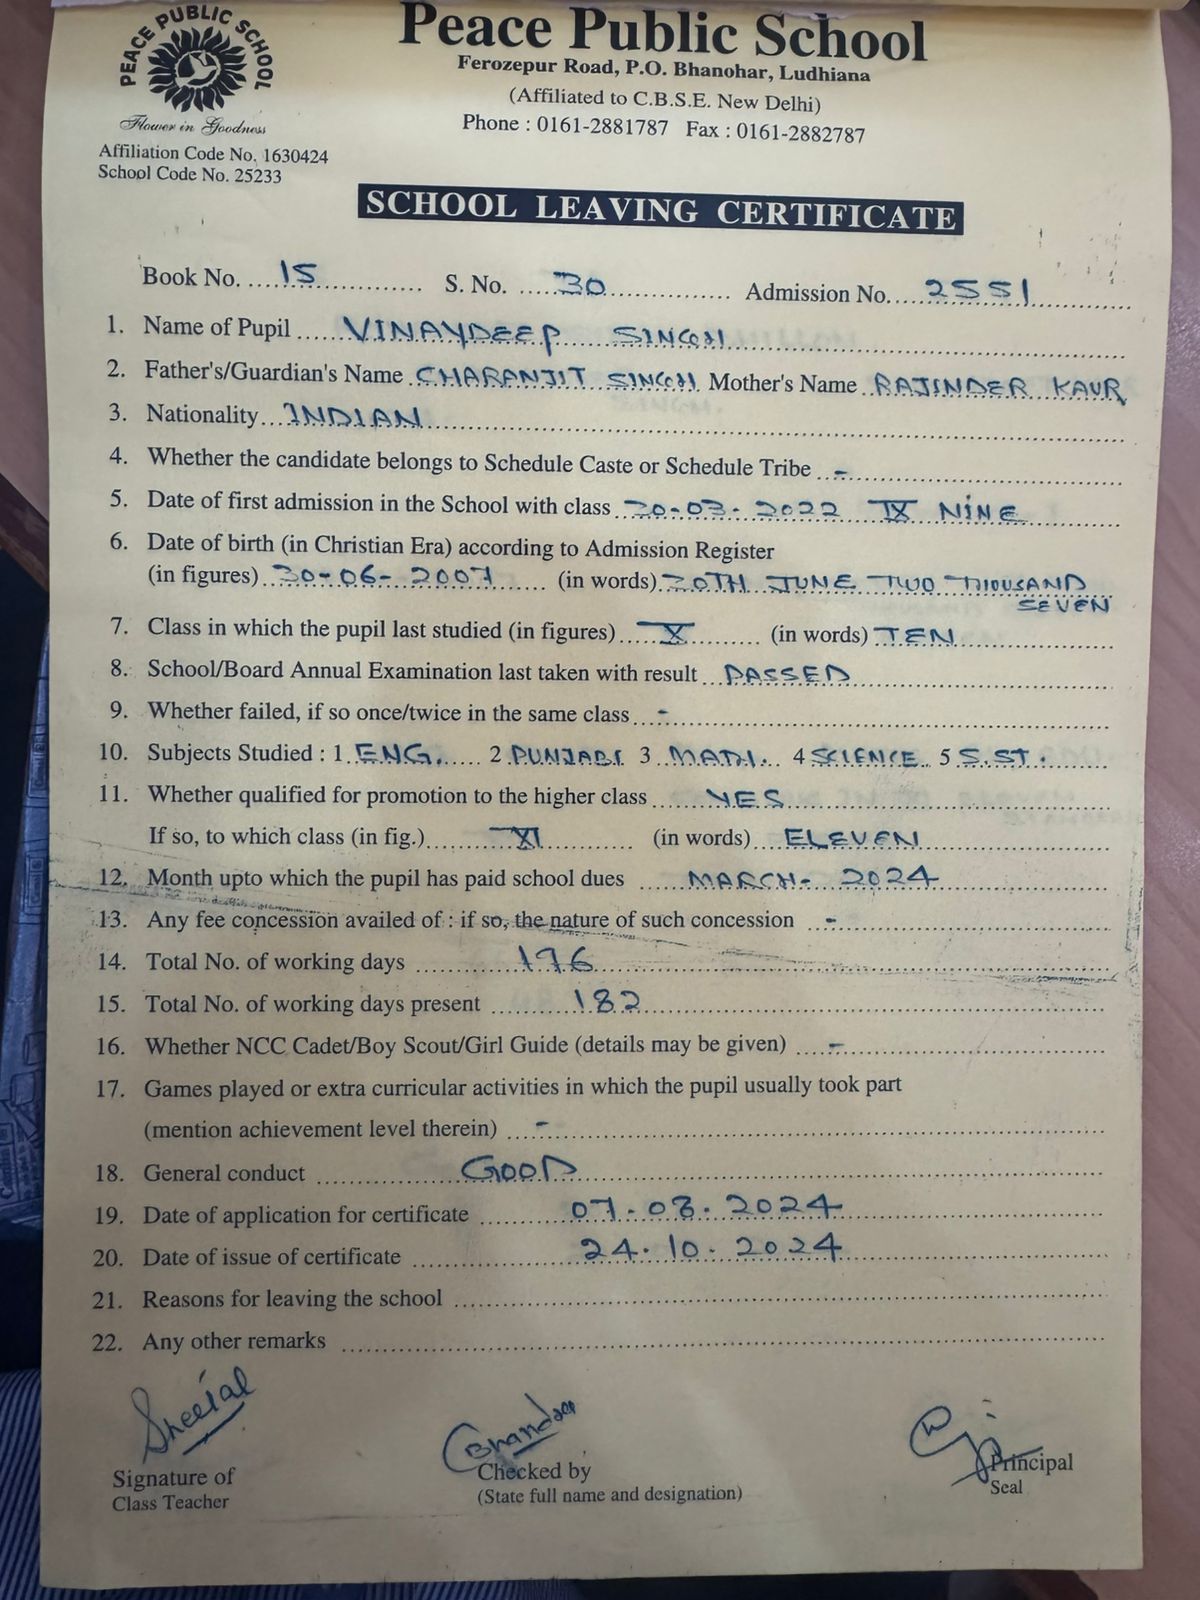 PEACE PUBLIC SCHOOL
Flower in Goodness
Affiliation Code No. 1630424
School Code No. 25233
Peace Public School
Ferozepur Road, P.O. Bhanohar, Ludhiana
(Affiliated to C.B.S.E. New Delhi)
Phone : 0161-2881787 Fax : 0161-2882787
SCHOOL LEAVING CERTIFICATE
Book No. 15 S. No. 30 Admission No. 2551
1. Name of Pupil VINAYDEEP SINGH
2. Father's/Guardian's Name CHARANJIT SINGH Mother's Name RAJINDER KAUR
3. Nationality INDIAN
4. Whether the candidate belongs to Schedule Caste or Schedule Tribe -
5. Date of first admission in the School with class 30-03-2022 IX NINE
6. Date of birth (in Christian Era) according to Admission Register
(in figures) 30-06-2007 (in words) 30TH JUNE TWO THOUSAND
SEVEN
7. Class in which the pupil last studied (in figures) X (in words) TEN
8. School/Board Annual Examination last taken with result PASSED
9. Whether failed, if so once/twice in the same class -
10. Subjects Studied : 1. ENG. 2 PUNJABI 3 MATH. 4 SCIENCE 5 S.ST.
11. Whether qualified for promotion to the higher class YES
If so, to which class (in fig.) XI (in words) ELEVEN
12. Month upto which the pupil has paid school dues MARCH- 2024
13. Any fee concession availed of : if so, the nature of such concession -
14. Total No. of working days 196
15. Total No. of working days present 182
16. Whether NCC Cadet/Boy Scout/Girl Guide (details may be given) -
17. Games played or extra curricular activities in which the pupil usually took part
(mention achievement level therein) -
18. General conduct GOOD
19. Date of application for certificate 07.08.2024
20. Date of issue of certificate 24.10.2024
21. Reasons for leaving the school
22. Any other remarks
Sheetal
Signature of
Class Teacher
Checked by
(State full name and designation)
Principal
Seal